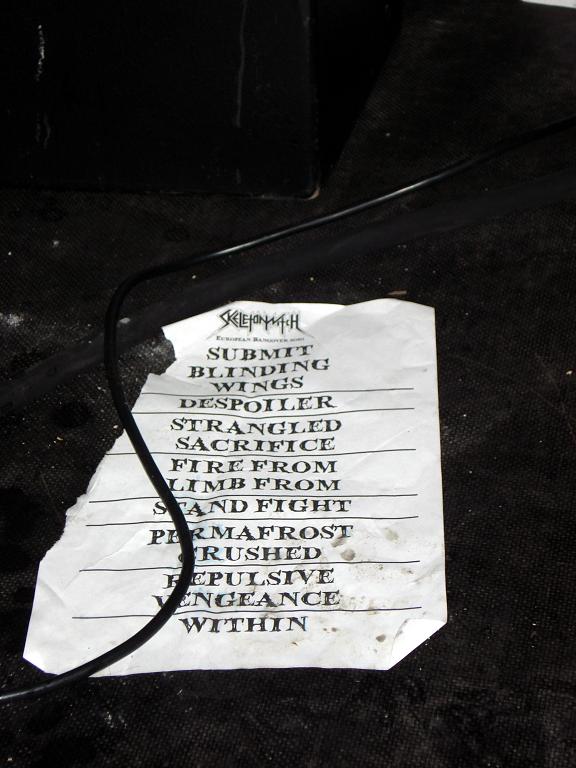 SKELETONWITCH
EUROPEAN HANGOVER 2010
SUBMIT
BLINDING
WINGS
DESPOILER
STRANGLED
SACRIFICE
FIRE FROM
LIMB FROM
STAND FIGHT
PERMAFROST
CRUSHED
REPULSIVE
VENGEANCE
WITHIN